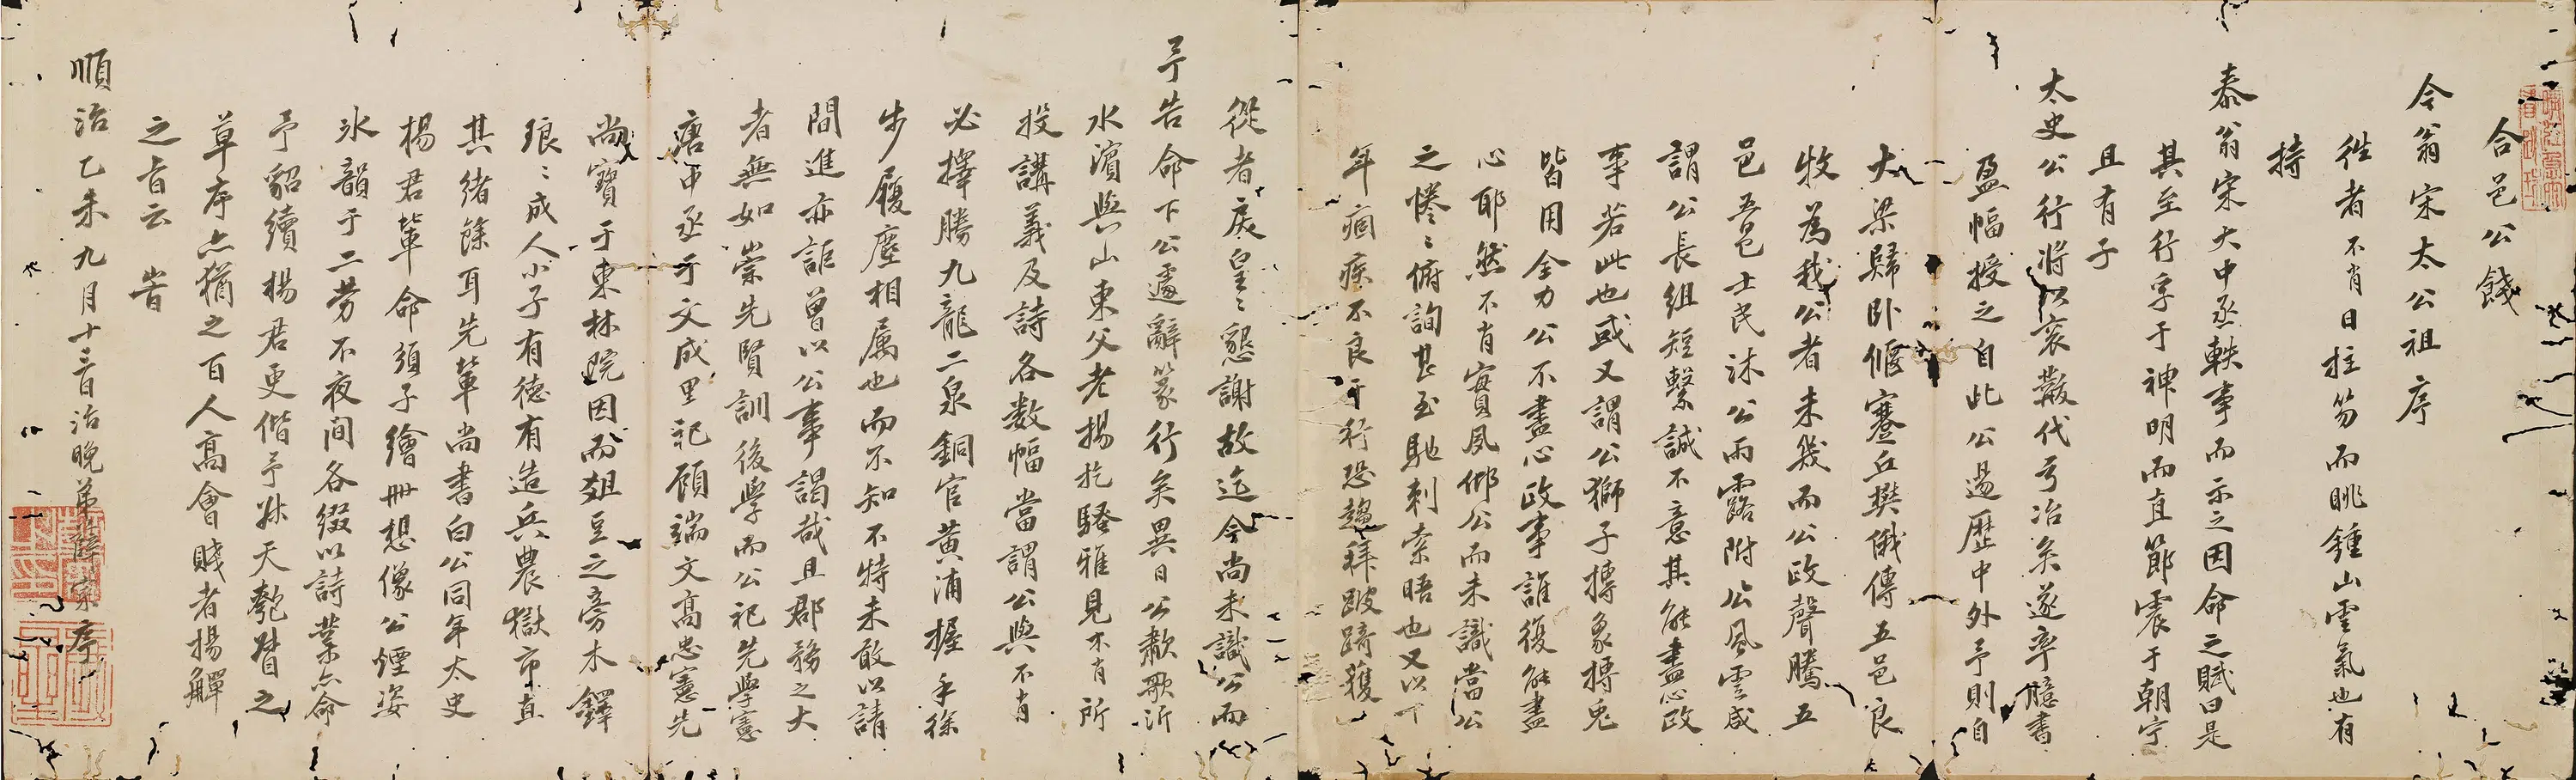 合邑公餞
令翁宋太公祖序
徃者不肖日拄笏而眺鍾山雲氣也有
持
泰翁宋大中丞軼事而示之因命之賦曰是
其至行孚于神明而直節震于朝宁
且有子
太史公行將以衮黻代弓冶矣遂率臆書
盈幅授之自此公揚歷中外予則自
大梁歸卧偃蹇丘樊俄傳五邑良
牧為我公者未幾而公政聲騰五
邑五邑士民沐公雨露附公風雲咸
謂公長組短繫誠不意其能盡心政
事若此也或又謂公獅子搏象搏兎
皆用全力公不盡心政事誰復能盡
心耶然不肖實夙嚮公而未識當公
之惓〻俯詢甚至馳刺索晤也又以丁
年痼疾不良于行恐趨拜跛踦獲
從者戾皇〻懇謝故迄今尚未識公而
予告命下公遽辭篆行矣異日公歗歌沂
水濱與山東父老揚扢騷雅見不肖所
投講義及詩各数幅當謂公與不肖
必擇勝九龍二泉銅官黃浦握手徐
步履塵相属也而不知不特未敢以請
間進亦詎曾以公事謁哉且郡務之大
者無如崇先賢訓後學而公祀先學憲
唐中丞于文成里祀顧端文高忠憲先
尚寳于東林院因而爼豆之旁木鐸
琅〻成人小子有德有造兵農獄市直
其緒餘耳先軰尚書白公同年太史
楊君軰命須子繪冊想像公煙姿
氷韻于二勞不夜間各綴以詩業亦命
予貂續楊君更偕予妹天瓠督之
草序亦猶之百人高會賤者揚觶
之旨云 旹
順治乙未九月十三日治晚弟薛寀序